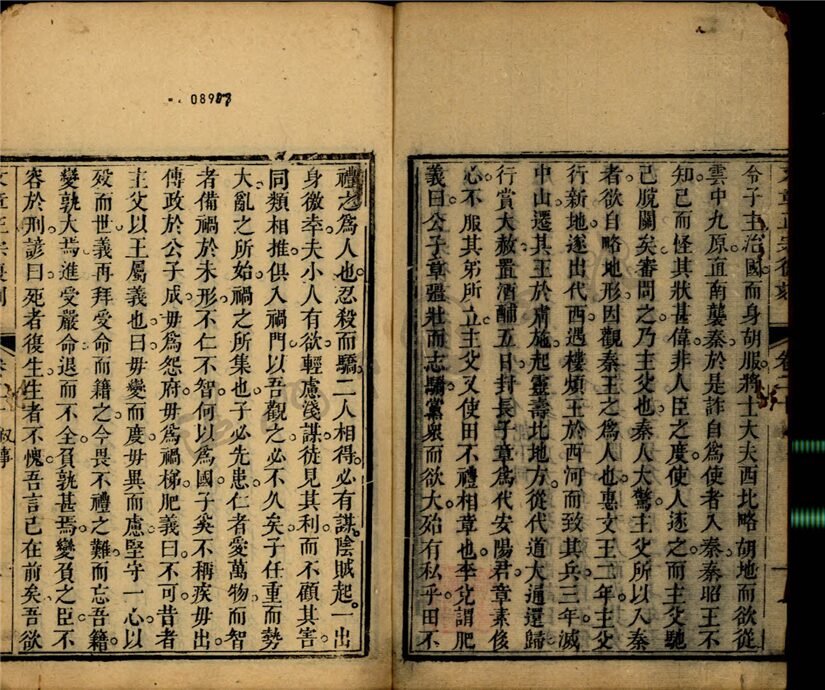 08907
令子主治國而身胡服將士大夫西北略胡地而欲從
雲中九原直南襲秦於是詐自爲使者入秦秦昭王不
知已而怪其狀甚偉非人臣之度使人逐之而主父馳
已脫關矣審問之乃主父也秦人大驚主父所以入秦
者欲自略地形因觀秦王之爲人也惠文王二年主父
行新地遂出代西遇樓煩王於西河而致其兵三年滅
中山遷其王於膚施起靈壽北地方從代道大通還歸
行賞大赦置酒酺五日封長子章爲代安陽君章素侈
心不服其弟所立主父又使田不禮相章也李兌謂肥
義曰公子章彊壯而志驕黨衆而欲大殆有私乎田不
禮之爲人也忍殺而驕二人相得必有謀陰賊起一出
身徼幸夫小人有欲輕慮淺謀徒見其利而不顧其害
同類相推俱入禍門以吾觀之必不久矣子任重而勢
大亂之所始禍之所集也子必先患仁者愛萬物而智
者備禍於未形不仁不智何以爲國子奚不稱疾毋出
傳政於公子成毋爲怨府毋爲禍梯肥義曰不可昔者
主父以王屬義也曰毋變而度毋異而慮堅守一心以
歿而世義再拜受命而籍之今畏不禮之難而忘吾籍
變孰大焉進受嚴命退而不全負孰甚焉變負之臣不
容於刑諺曰死者復生生者不愧吾言已在前矣吾欲